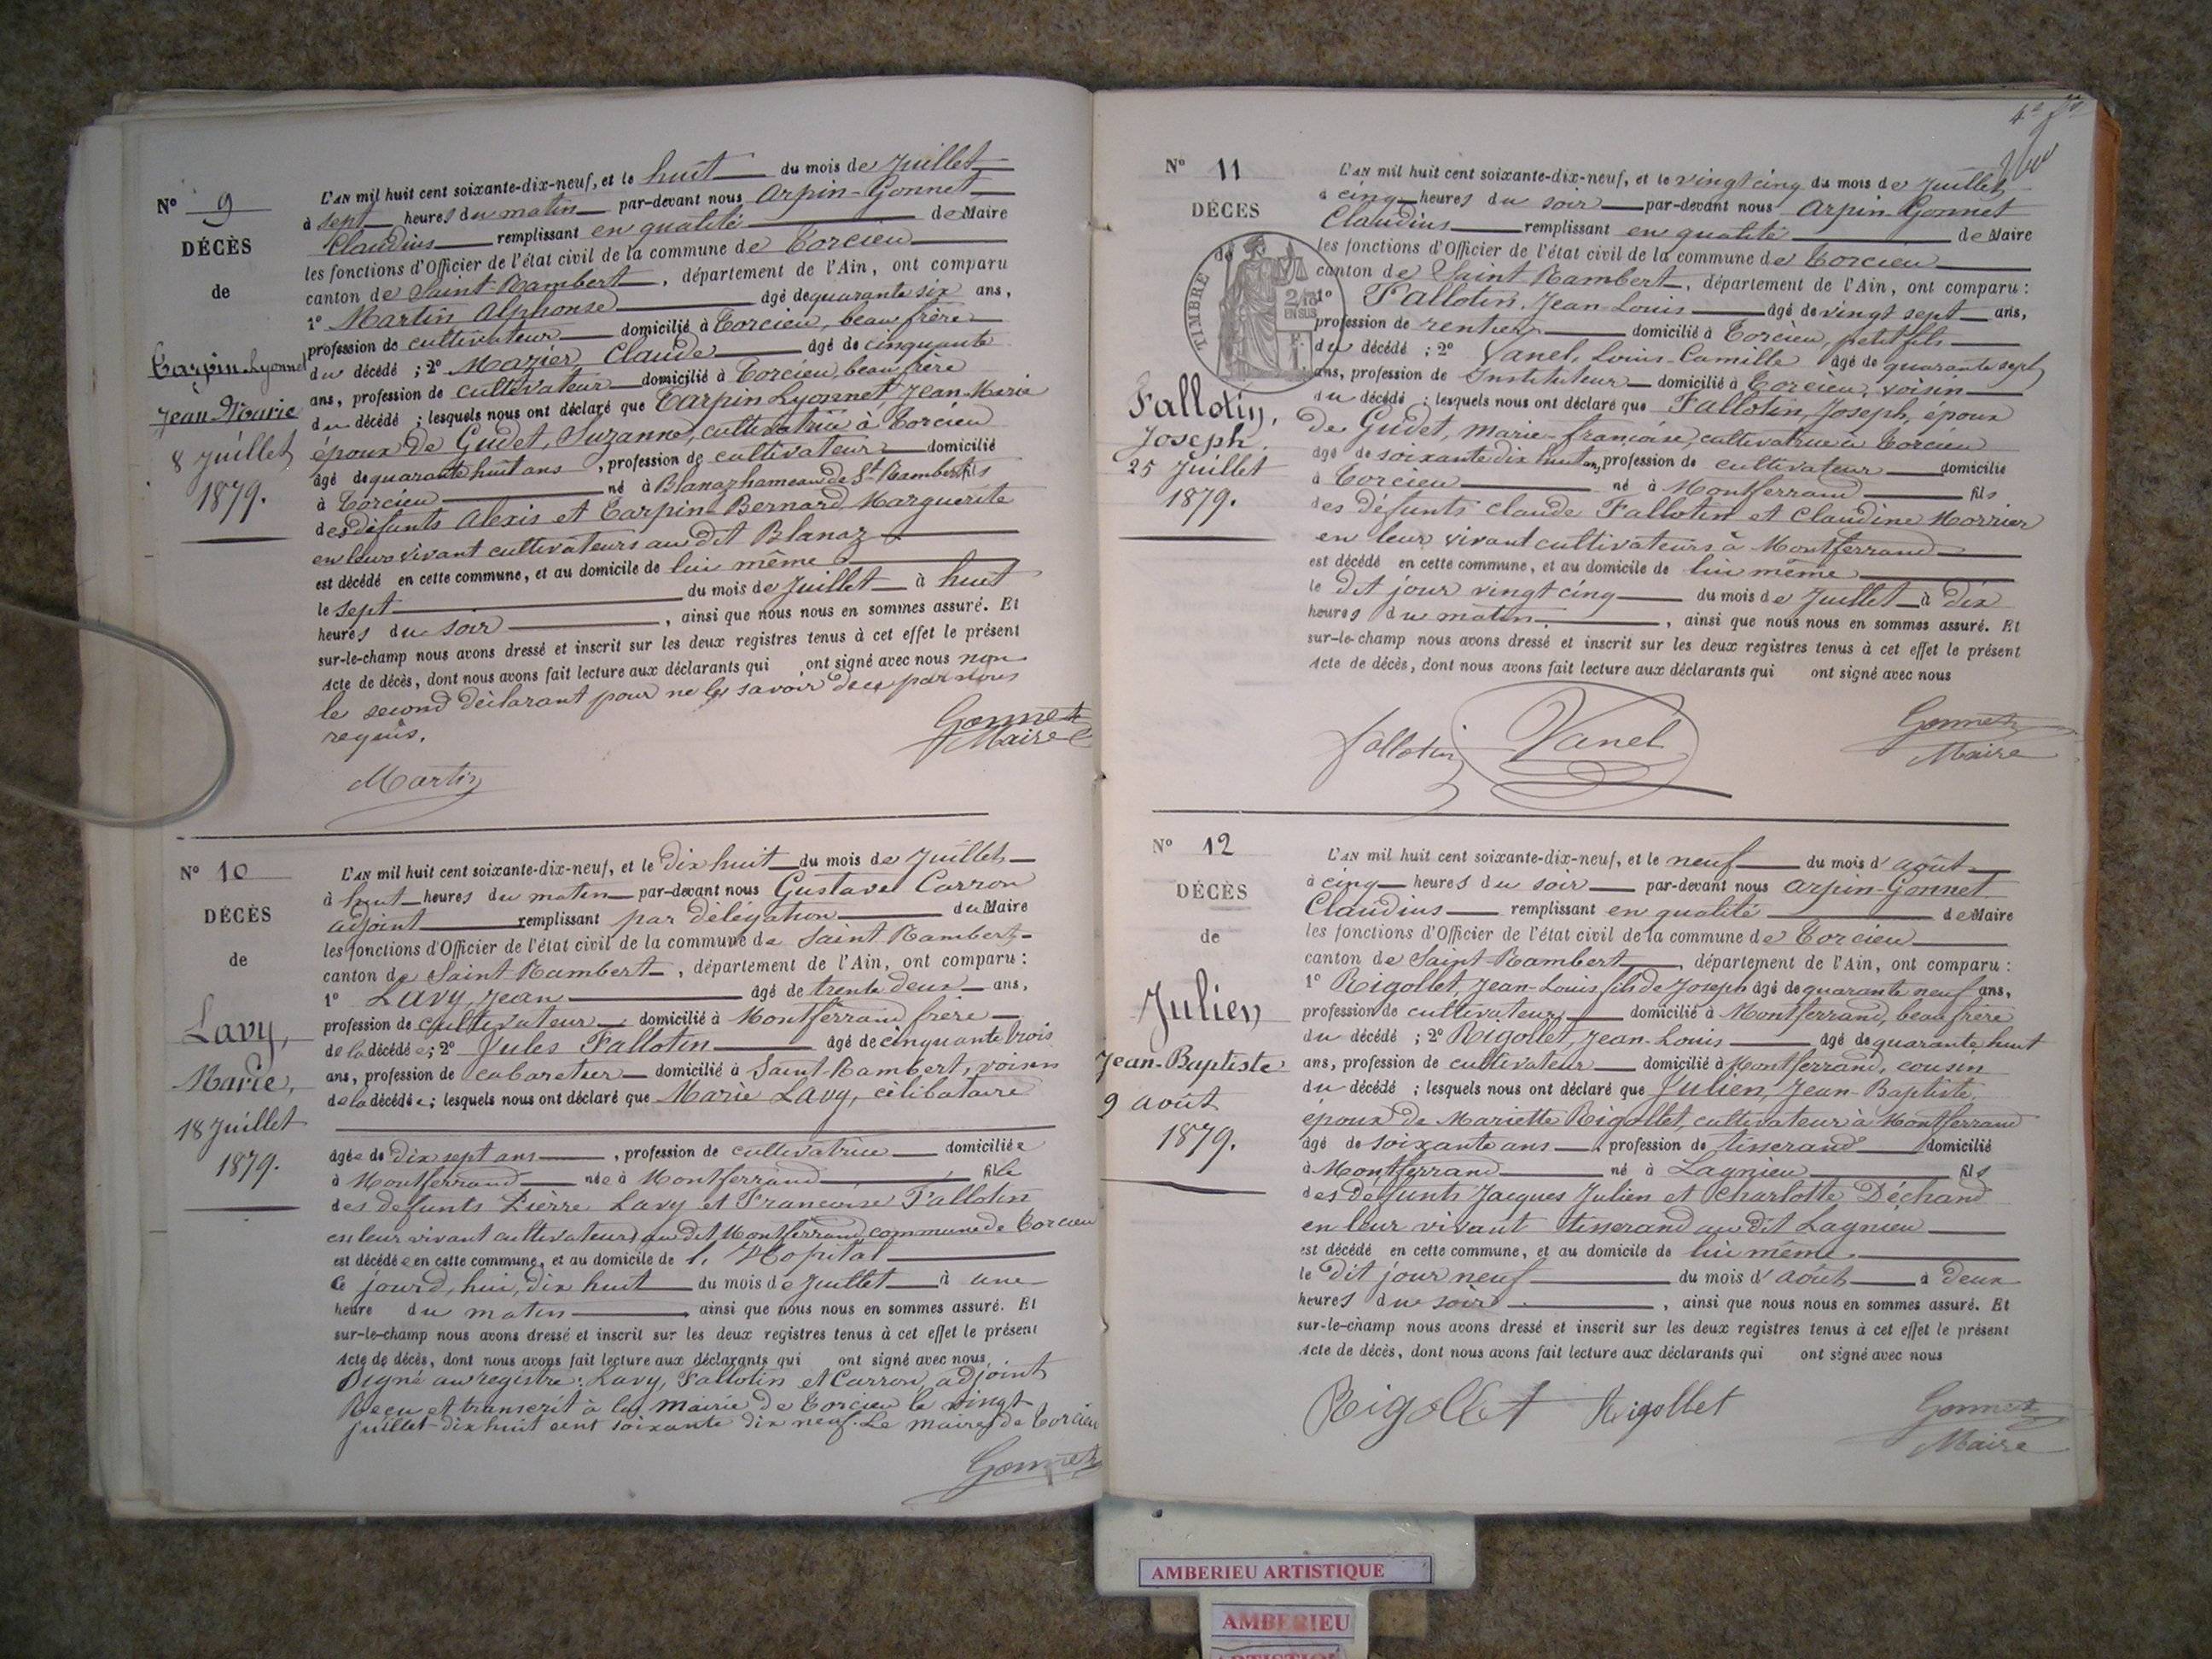 N° 9
DÉCÈS
de
Carpin Lyonnet
Jean Marie
8 Juillet
1879.
L'AN mil huit cent soixante-dix-neuf, et le huit du mois de Juillet
à sept heures du matin par-devant nous Arpin-Gonnet
Claudius remplissant en qualité de Maire
les fonctions d'Officier de l'état civil de la commune de Torcieu
canton de Saint-Rambert, département de l'Ain, ont comparu
1° Martin Alphonse âgé de quarante six ans,
profession de cultivateur domicilié à Torcieu, beau frère
du décédé ; 2° Mazier Claude âgé de cinquante
ans, profession de cultivateur domicilié à Torcieu, beau frère
du décédé ; lesquels nous ont déclaré que Carpin Lyonnet Jean-Marie
époux de Gudet, Suzanne, cultivatrice à Torcieu
âgé de quarante huit ans, profession de cultivateur domicilié
à Torcieu né à Blanaz hameau de St Rambert fils
des défunts Alexis et Carpin Bernard Marguerite
en leurs vivant cultivateurs au dit Blanaz
est décédé en cette commune, et au domicile de lui même
le sept du mois de Juillet à huit
heures du soir, ainsi que nous nous en sommes assuré. Et
sur-le-champ nous avons dressé et inscrit sur les deux registres tenus à cet effet le présent
Acte de décès, dont nous avons fait lecture aux déclarants qui ont signé avec nous non
le second déclarant pour ne le savoir de ce par nous
requis.
Gonnet
Maire
Martin
N° 10
DÉCÈS
de
Lavy,
Marie,
18 Juillet
1879.
L'AN mil huit cent soixante-dix-neuf, et le dix huit du mois de Juillet
à huit heures du matin par-devant nous Gustave Carron
adjoint remplissant par délégation du Maire
les fonctions d'Officier de l'état civil de la commune de Saint Rambert
canton de Saint-Rambert, département de l'Ain, ont comparu :
1° Lavy, Jean âgé de trente deux ans,
profession de cultivateur domicilié à Montferrand frère
de la décédée ; 2° Jules Fallotin âgé de cinquante trois
ans, profession de cabaretier domicilié à Saint-Rambert, voisin
de la décédée ; lesquels nous ont déclaré que Marie Lavy, célibataire
âgée de dix sept ans, profession de cultivatrice domiciliée
à Montferrand née à Montferrand fille
des défunts Pierre Lavy et Françoise Fallotin
en leur vivant cultivateurs au dit Montferrand commune de Torcieu
est décédée en cette commune, et au domicile de l'Hopital
Ce jourd'hui, dix huit du mois de Juillet à une
heure du matin ainsi que nous nous en sommes assuré. Et
sur-le-champ nous avons dressé et inscrit sur les deux registres tenus à cet effet le présent
Acte de décès, dont nous avons fait lecture aux déclarants qui ont signé avec nous,
Signé au registre : Lavy, Fallotin et Carron, adjoint
Reçu et transcrit à la mairie de Torcieu le vingt
juillet dix huit cent soixante dix neuf. Le maire de Torcieu
Gonnet
N° 11
DÉCÈS
de
TIMBRE
2/10
EN SUS
Fallotin,
Joseph.
25 Juillet
1879.
L'AN mil huit cent soixante-dix-neuf, et le vingt cinq du mois de Juillet
à cinq heures du soir par-devant nous Arpin Gonnet
Claudius remplissant en qualité de Maire
les fonctions d'Officier de l'état civil de la commune de Torcieu
canton de Saint Rambert, département de l'Ain, ont comparu :
1° Fallotin, Jean-Louis âgé de vingt sept ans,
profession de rentier domicilié à Torcieu, petit fils
du décédé ; 2° Vanel, Louis-Camille âgé de quarante sept
ans, profession de Instituteur domicilié à Torcieu, voisin
du décédé ; lesquels nous ont déclaré que Fallotin, Joseph, époux
de Gudet, Marie-françoise, cultivatrice à Torcieu
âgé de soixante dix huit ans, profession de cultivateur domicilié
à Torcieu né à Montferrand fils
des défunts Claude Fallotin et Claudine Morrier
en leur vivant cultivateurs à Montferrand
est décédé en cette commune, et au domicile de lui même
le dit jour vingt cinq du mois de Juillet à dix
heures du matin, ainsi que nous nous en sommes assuré. Et
sur-le-champ nous avons dressé et inscrit sur les deux registres tenus à cet effet le présent
Acte de décès, dont nous avons fait lecture aux déclarants qui ont signé avec nous
Fallotin Vanel Gonnet
Maire
N° 12
DÉCÈS
de
Julien
Jean-Baptiste
9 août
1879.
L'AN mil huit cent soixante-dix-neuf, et le neuf du mois d'août
à cinq heures du soir par-devant nous Arpin-Gonnet
Claudius remplissant en qualité de Maire
les fonctions d'Officier de l'état civil de la commune de Torcieu
canton de Saint-Rambert, département de l'Ain, ont comparu :
1° Rigollet, Jean-Louis fils de Joseph âgé de quarante neuf ans,
profession de cultivateur domicilié à Montferrand, beau frère
du décédé ; 2° Rigollet, Jean-Louis âgé de quarante huit
ans, profession de cultivateur domicilié à Montferrand, cousin
du décédé ; lesquels nous ont déclaré que Julien, Jean-Baptiste,
époux de Mariette Rigollet, cultivateur à Montferrand
âgé de soixante ans, profession de tisserand domicilié
à Montferrand né à Lagnieu fils
des défunts Jacques Julien et Charlotte Déchand
en leur vivant tisserand au dit Lagnieu
est décédé en cette commune, et au domicile de lui même.
le dit jour neuf du mois d'août à deux
heures du soir, ainsi que nous nous en sommes assuré. Et
sur-le-champ nous avons dressé et inscrit sur les deux registres tenus à cet effet le présent
Acte de décès, dont nous avons fait lecture aux déclarants qui ont signé avec nous
Rigollet Rigollet Gonnet
Maire
AMBERIEU ARTISTIQUE
AMBERIEU
ARTISTIQUE